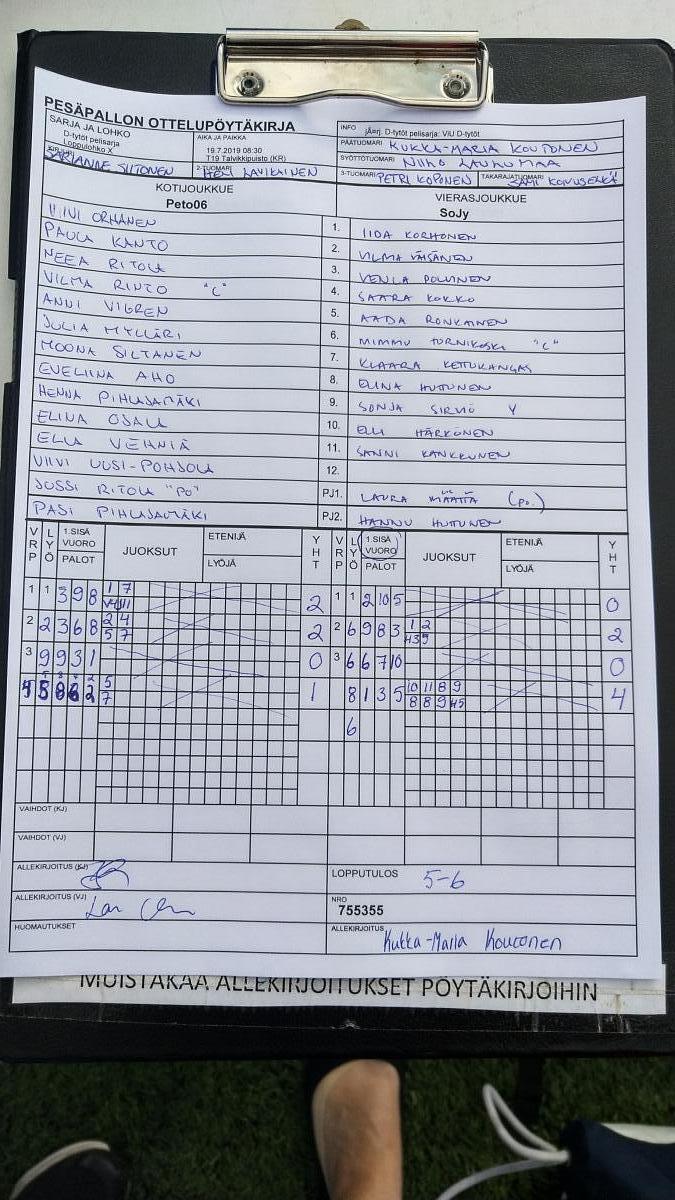 PESÄPALLON OTTELUPÖYTÄKIRJA
SARJA JA LOHKO
D-tytöt pelisarja
Loppulohko X
AIKA JA PAIKKA
19.7.2019 08:30
T19 Talvikkipuisto (KR)
INFO
jÄrj. D-tytöt pelisarja: ViU D-tytöt
PÄÄTUOMARI KUKKA-MARIA KOUTONEN
SYÖTTÖTUOMARI NIIKO
SARIANNE SIITONEN
2-TUOMARI HENI LAVIKAINEN
3-TUOMARI PETRI KOPONEN
TAKARAJATUOMARI SAMI
KOTIJOUKKUE
Peto06
VIERASJOUKKUE
SoJy
VIIVI ORHANEN
1. IIDA KORHONEN
PAULA KANTO
2. VILMA VÄISÄNEN
NEEA RITOLA
3. VENLA POLVINEN
VILMA RINTO "C"
4. SAARA KOKKO
ANNI VIGREN
5. AADA RONKAINEN
JULIA MYLLÄRI
6. MIMMU TORNIKOSKI "C"
MOONA SILTANEN
7. KLAARA KETTUKANGAS
EVELIINA AHO
8. ELINA HUTUNEN
HENNA PIHLAJAMÄKI
9. SONJA SIRVIÖ Y
ELINA OJALA
10. ELLI HÄRKÖNEN
ELLA VEHNIÄ
11. SANNI KANKKUNEN
VIIVI UUSI-POHJOLA
12.
JUSSI RITOLA "PO"
PJ1. LAURA MÄÄTTÄ (PO.)
PASI PIHLAJAMÄKI
PJ2. HANNU HUTUNEN
VRP LYÖ 1.SISÄ VUORO PALOT JUOKSUT ETENIJÄ LYÖJÄ YHT
VRP LYÖ 1.SISÄ VUORO PALOT JUOKSUT ETENIJÄ LYÖJÄ YHT
1 1 3 9 8 1 7 2
1 1 2 10 5 0
2 2 3 6 8 2 4 2
5 7
2 6 9 8 3 1 2 2
3 9 9 3 1 0
3 6 6 7 10 0
5 1
7
8 1 3 5 10 11 8 9 4
6
VAIHDOT (KJ)
VAIHDOT (VJ)
ALLEKIRJOITUS (KJ)
LOPPUTULOS 5-6
ALLEKIRJOITUS (VJ)
NRO
755355
HUOMAUTUKSET
ALLEKIRJOITUS Kukka-Maria Koutonen
MUISTAKAA ALLEKIRJOITUKSET PÖYTÄKIRJOIHIN